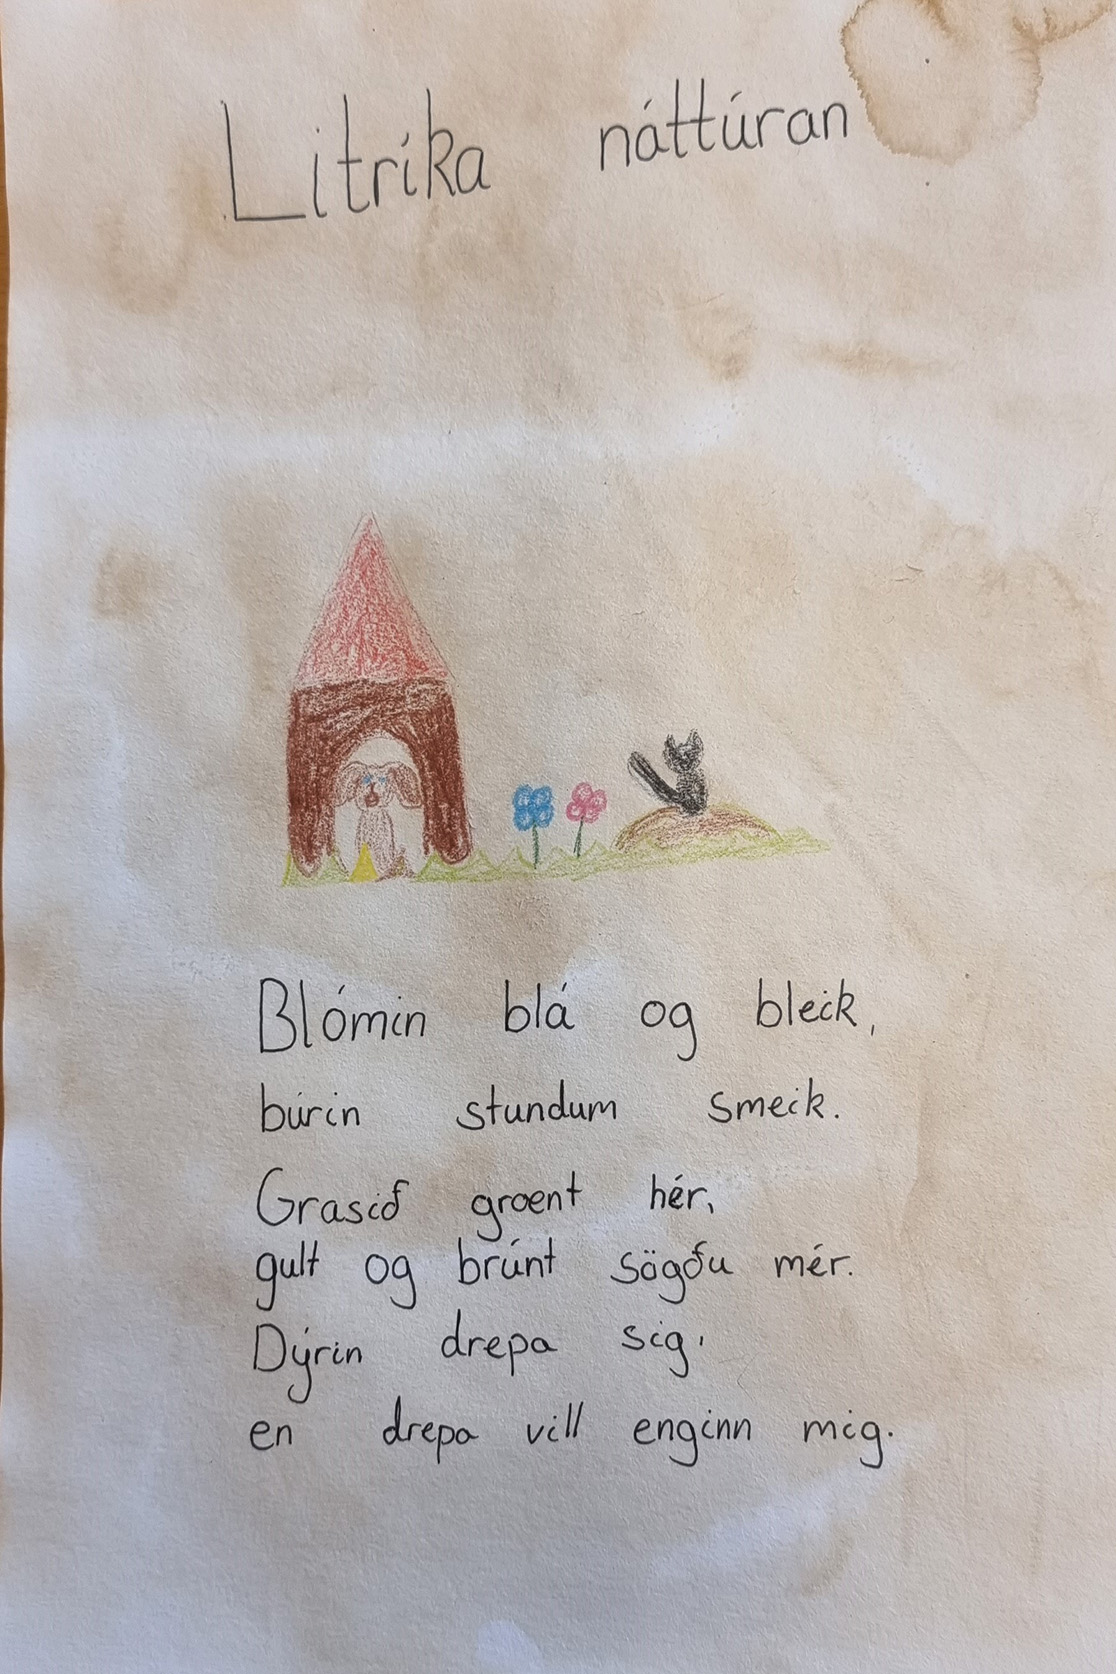 Litríka náttúran
Blómin blá og bleik,
búrin stundum smeik.
Grasið grœnt hér,
gult og brúnt sögðu mér.
Dýrin drepa sig,
en drepa vill enginn mig.